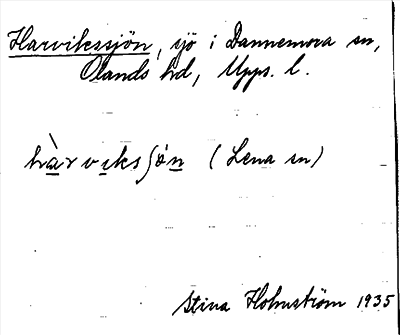 Harvikssjön, sjö i Dannemora sn,
Olands hd, Upps. l.
hàrviksʃön (Lena sn)
Stina Holmström 1935